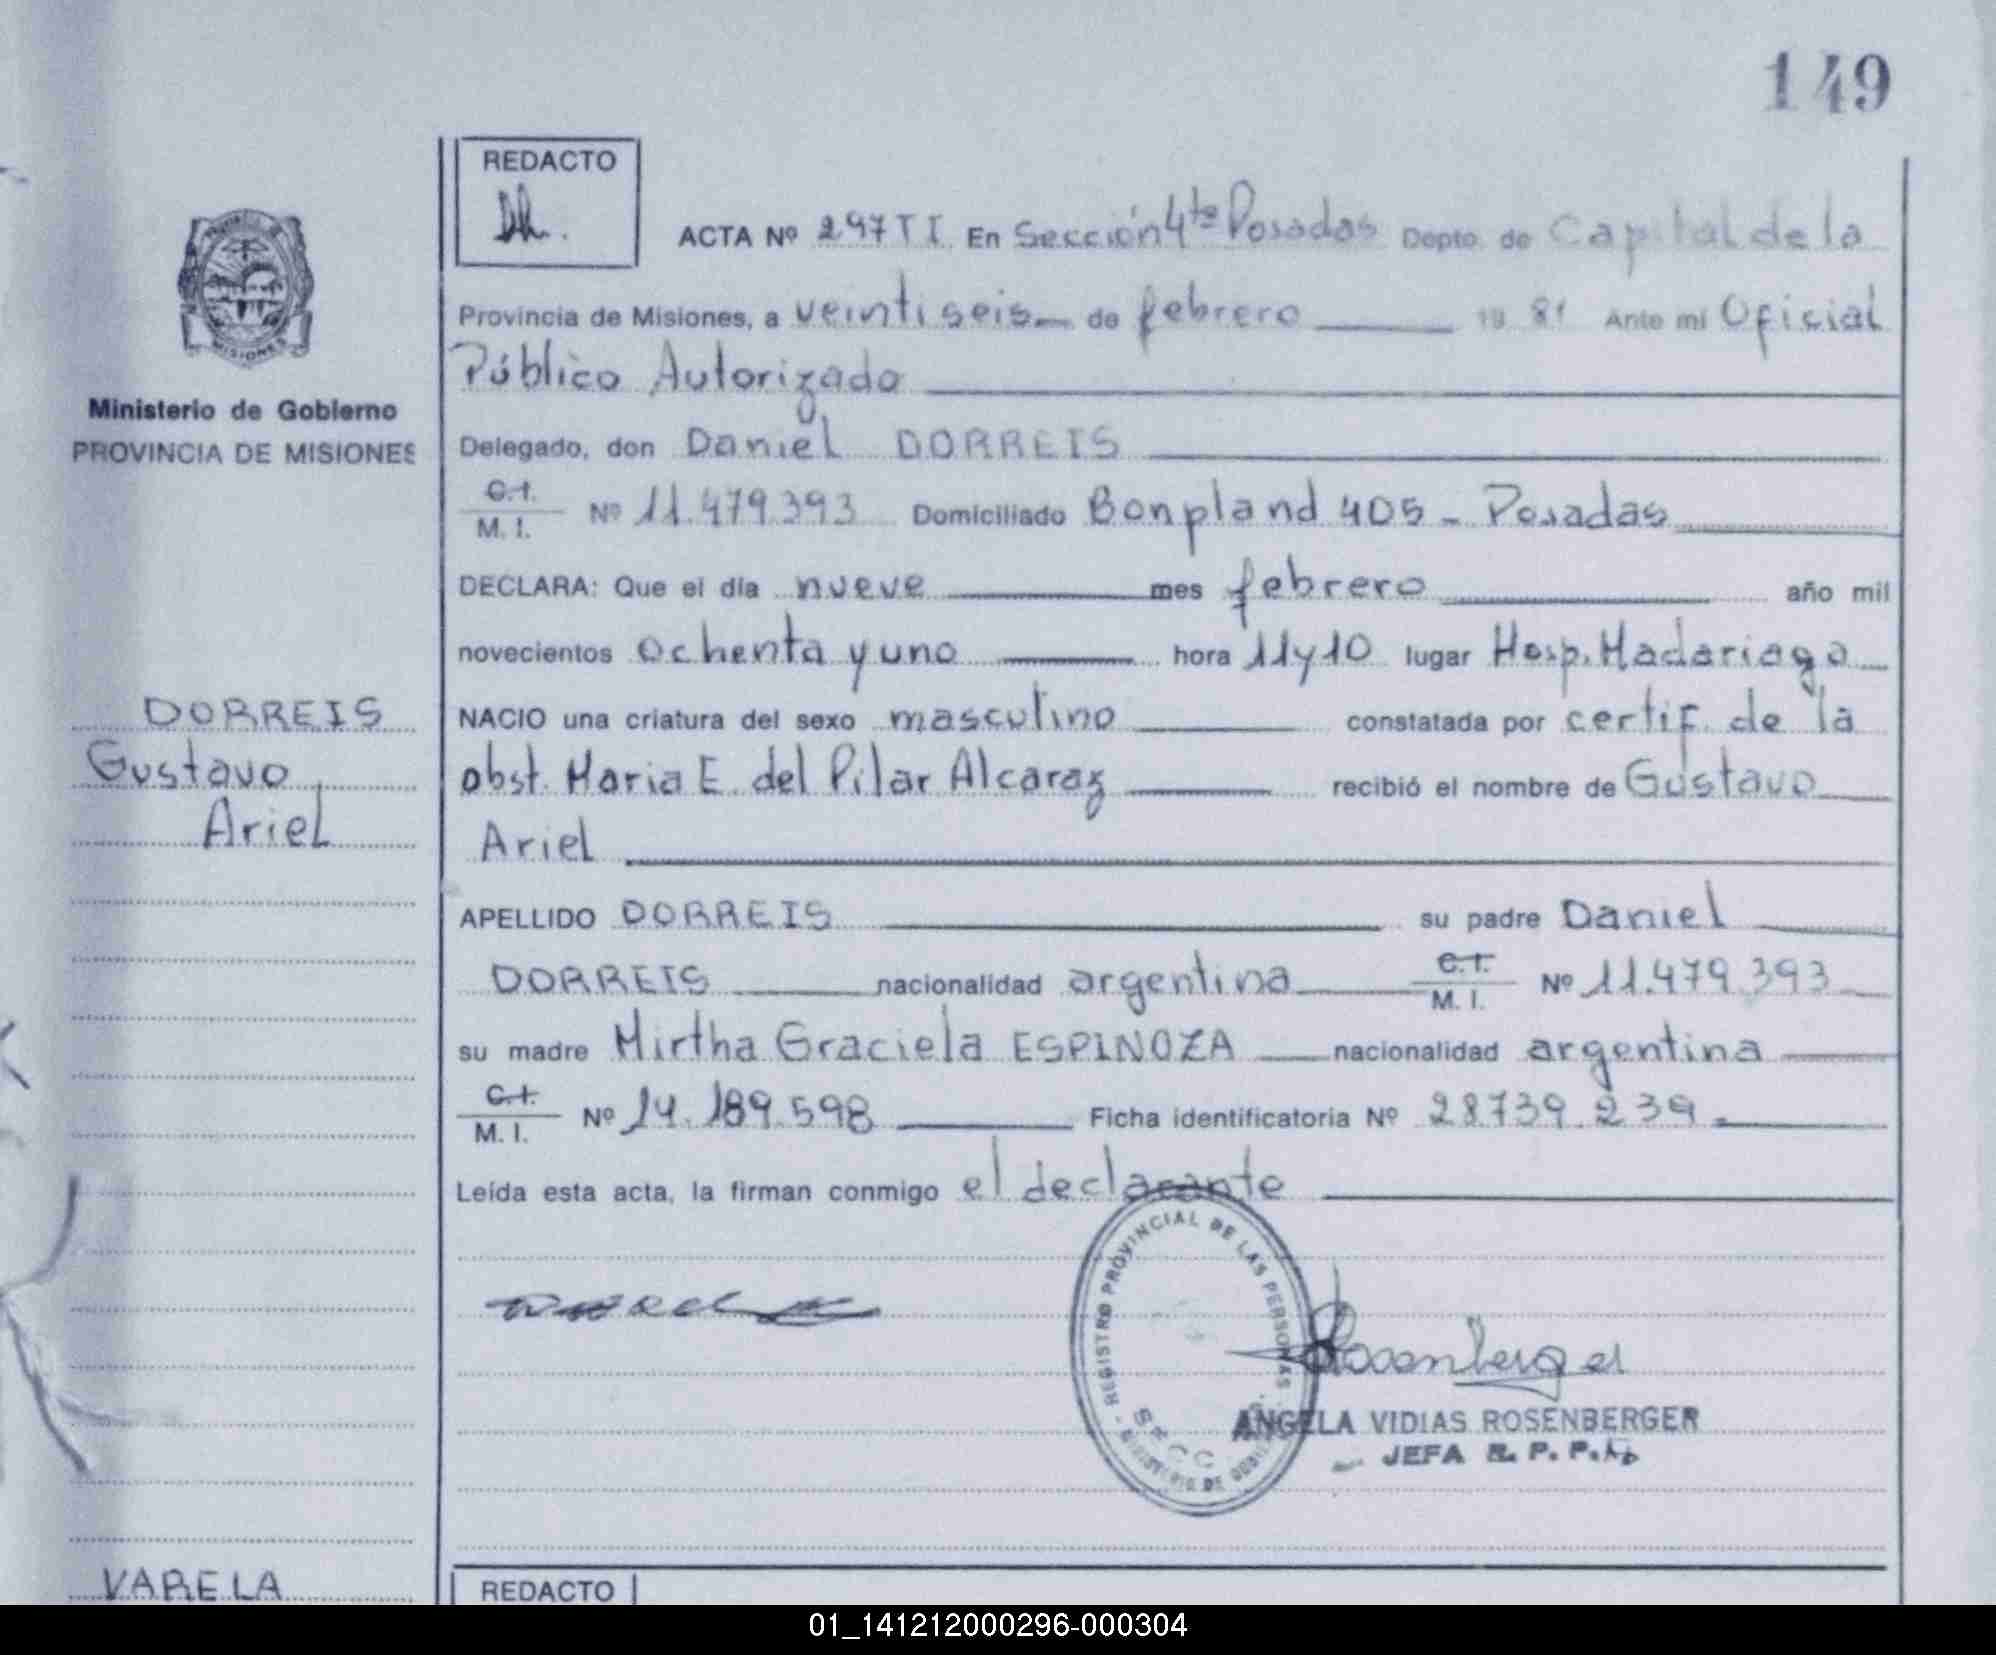 149
REDACTO
ACTA Nº 297 T I En Sección 4ta Posadas Depto. de Capital de la
Provincia de Misiones, a veintiseis de febrero 19 81 Ante mi Oficial
Público Autorizado
Ministerio de Gobierno
PROVINCIA DE MISIONES
Delegado, don Daniel DORREIS
C.I.
M. I. Nº 11.479.393 Domiciliado Bonpland 405 - Posadas
DECLARA: Que el día nueve mes febrero año mil
novecientos ochenta y uno hora 11 y 10 lugar Hosp. Madariaga
DORREIS
Gustavo
Ariel
NACIO una criatura del sexo masculino constatada por certif. de la
obst. Maria E. del Pilar Alcaraz recibió el nombre de Gustavo
Ariel
APELLIDO DORREIS su padre Daniel
DORREIS nacionalidad argentina C.I. M. I. Nº 11.479.393
su madre Mirtha Graciela ESPINOZA nacionalidad argentina
C.I.
M. I. Nº 14.189.598 Ficha identificatoria Nº 28739.239
Leída esta acta, la firman conmigo el declarante
REGISTRO PROVINCIAL DE LAS PERSONAS
MINISTERIO DE
SECC
Rosenberger
ANGELA VIDIAS ROSENBERGER
JEFA R. P. P.
VARELA
REDACTO
01_141212000296-000304